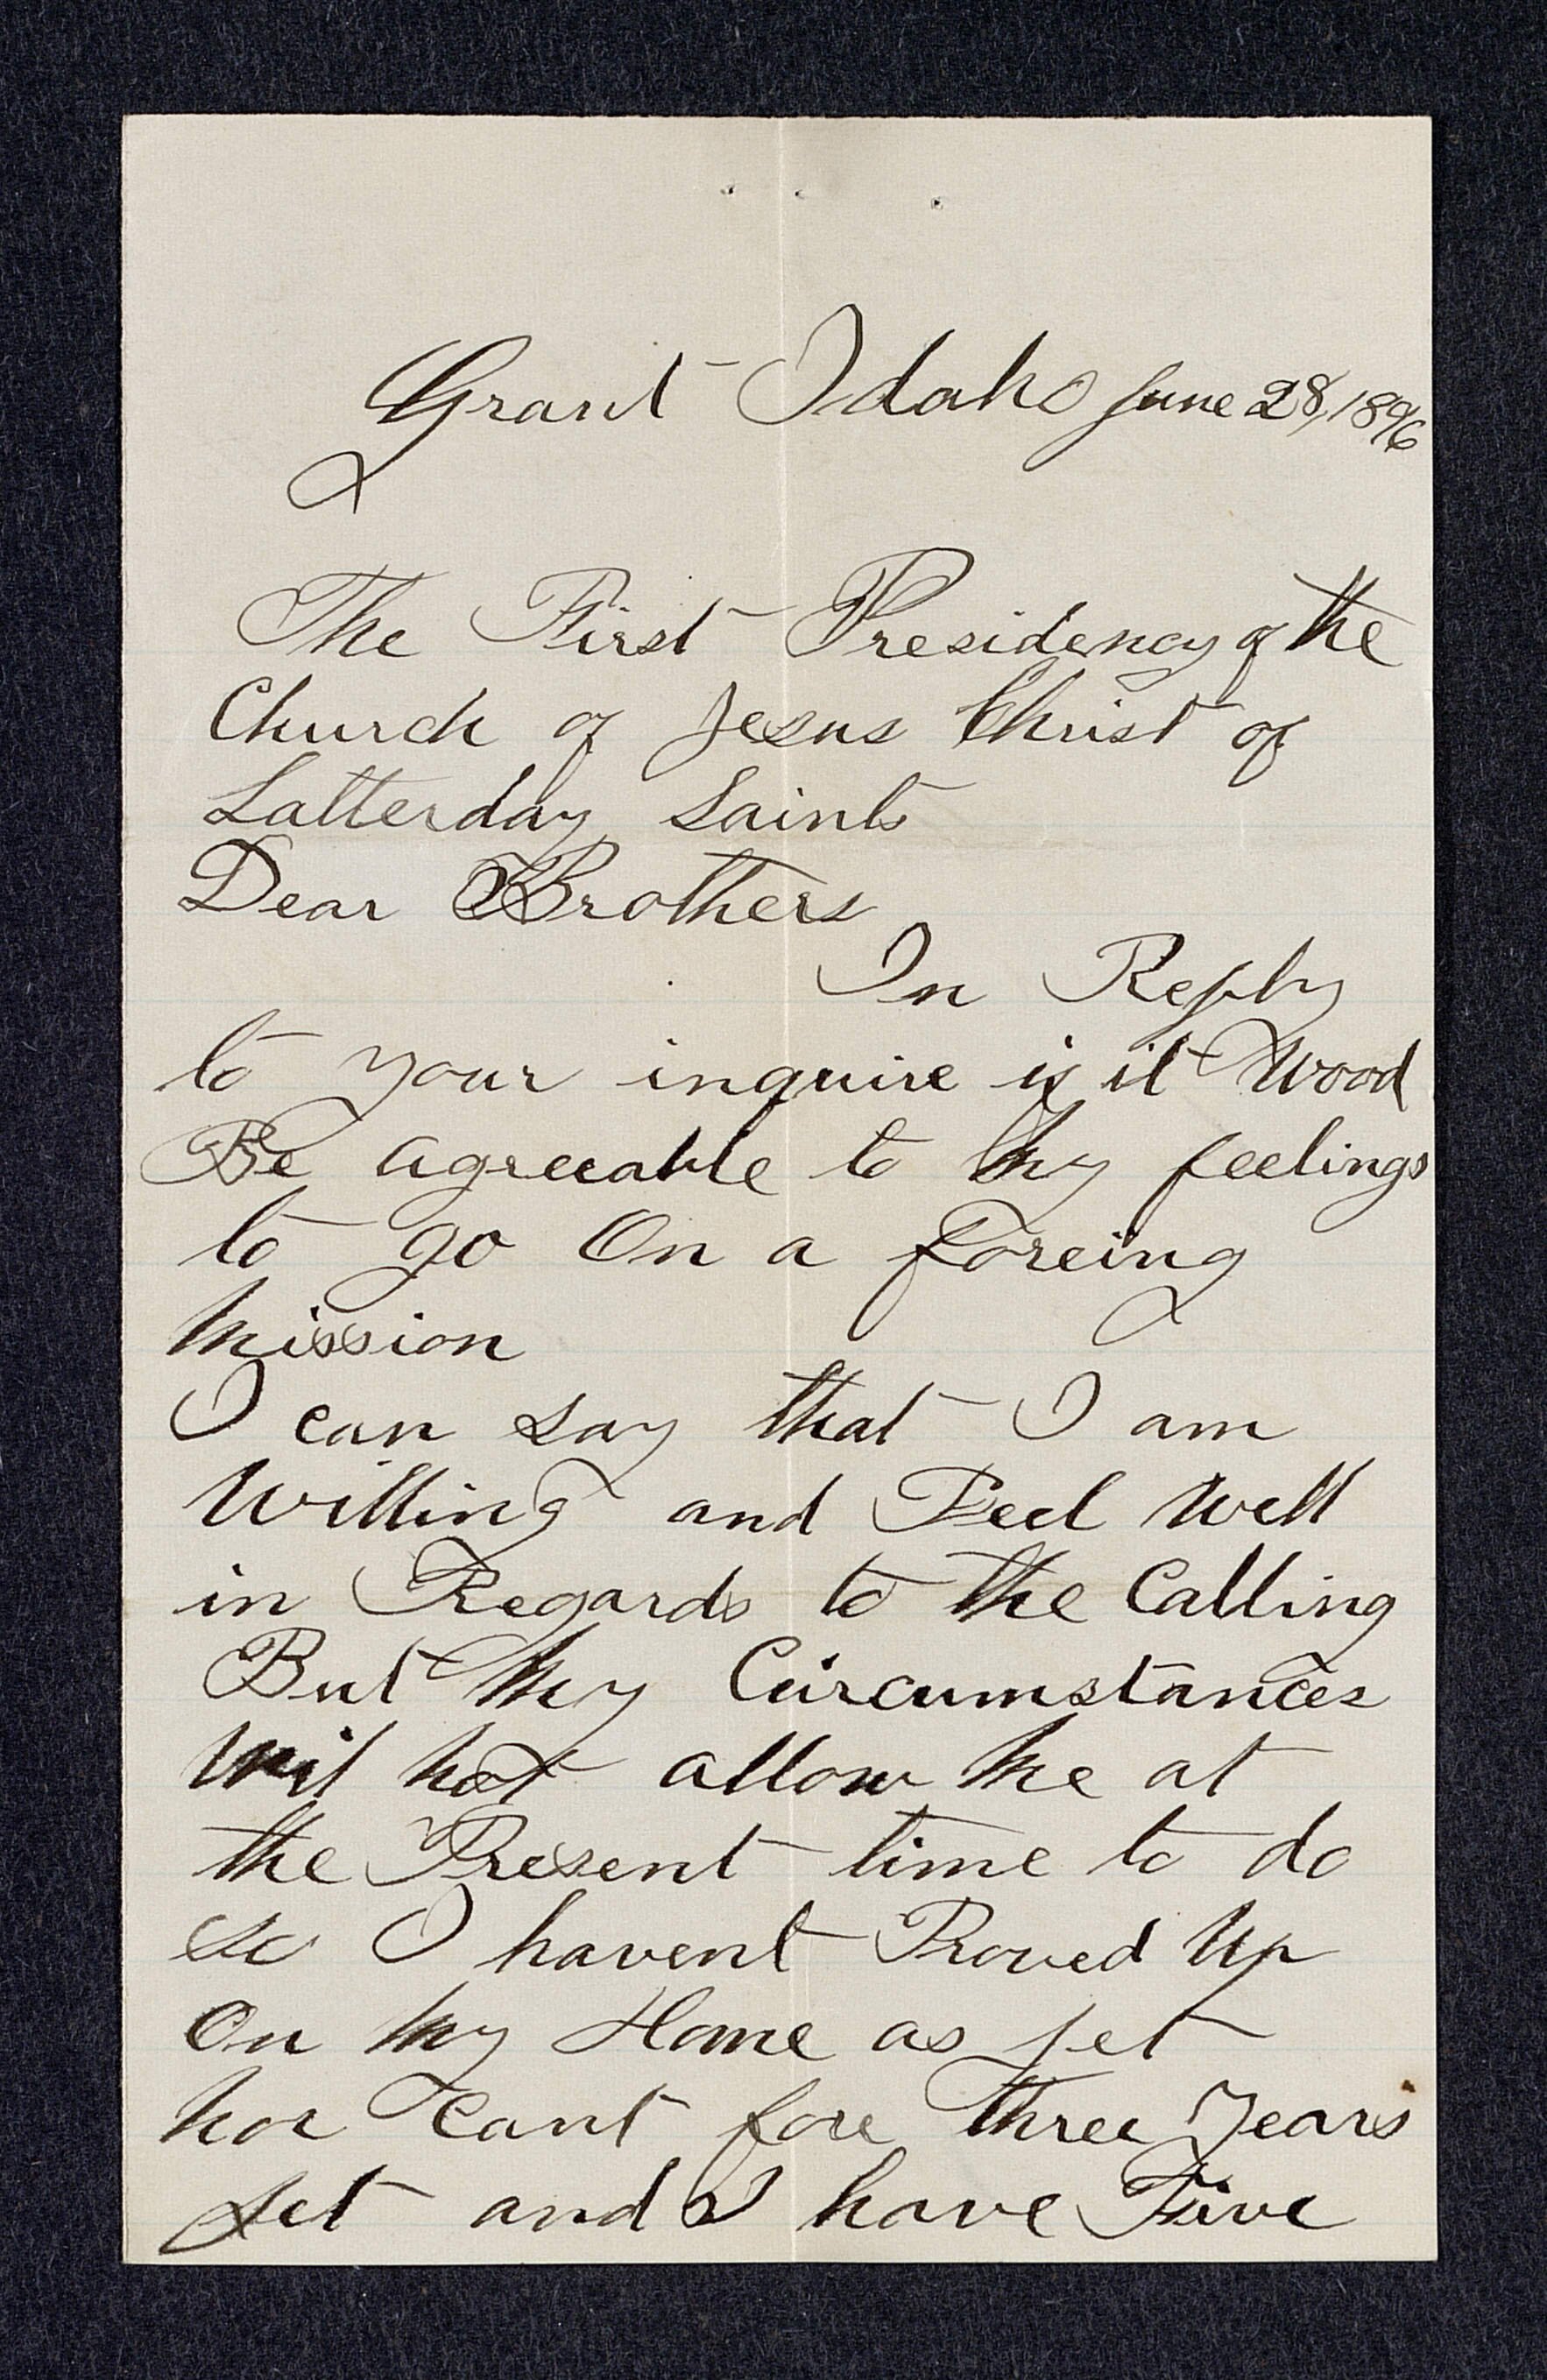 Grant Idaho June 28, 1896
The First Presidency of the
Church of Jesus Christ of
Latterday Saints
Dear Brothers
In Reply
to your inquire is it Wood
Be agreeable to My feelings
to go On a Foreing
Mission
I can say that I am
Willing and Feel Well
in Regards to the Calling
But My Circumstances
Wil not allow Me at
the Present time to do
so I havent Proved Up
On My Home as jet
nor Cant fore three Years
jet and I have Five